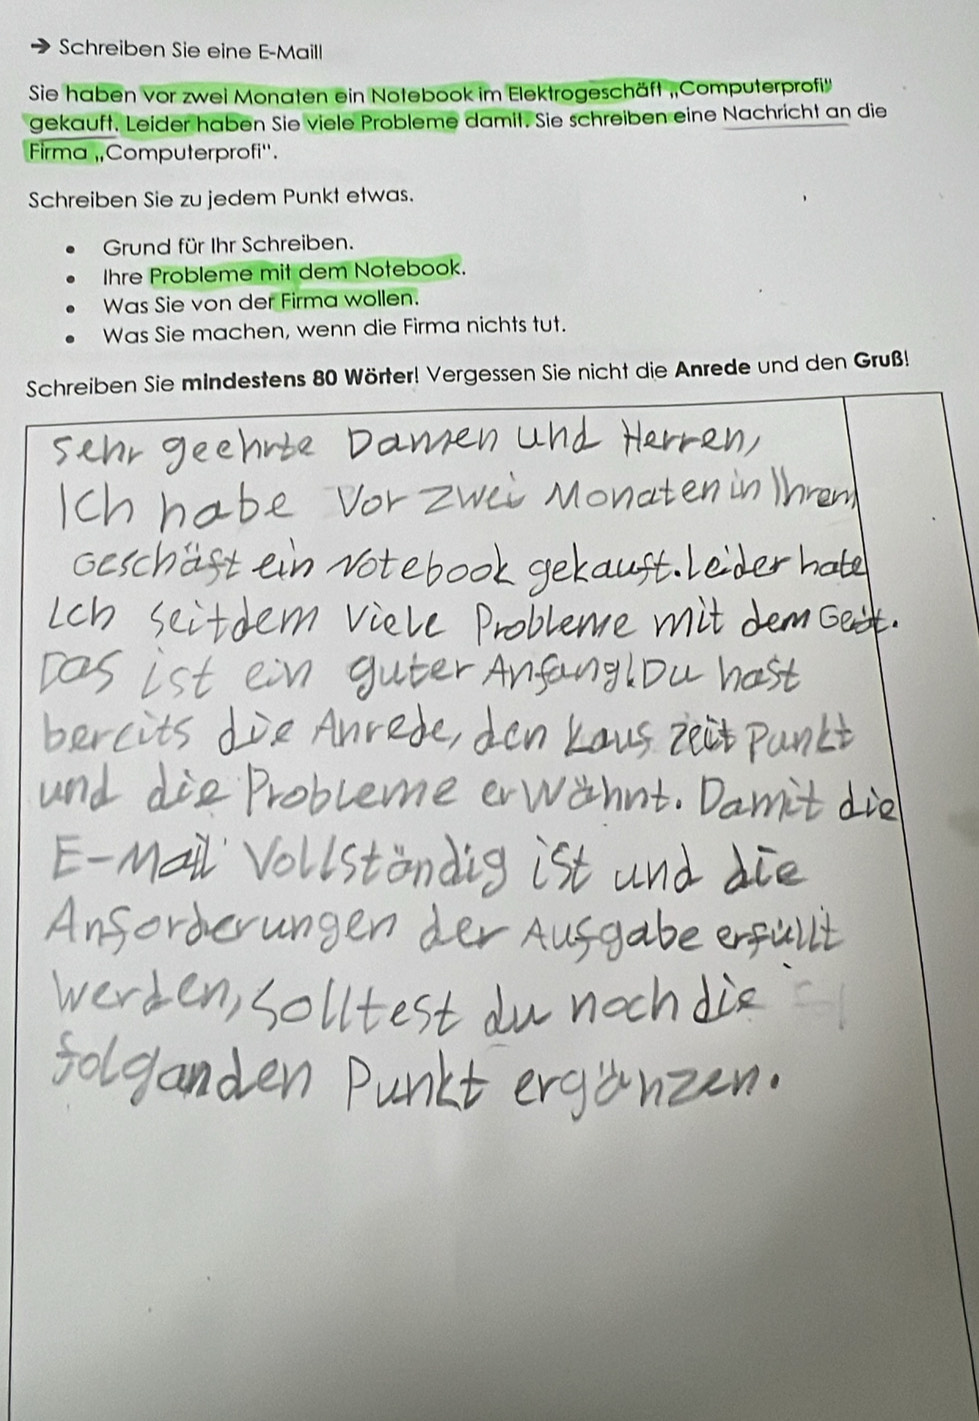 → Schreiben Sie eine E-Mail!
Sie haben vor zwei Monaten ein Notebook im Elektrogeschäft „Computerprofi"
gekauft. Leider haben Sie viele Probleme damit. Sie schreiben eine Nachricht an die
Firma „Computerprofi".
Schreiben Sie zu jedem Punkt etwas.
• Grund für Ihr Schreiben.
• Ihre Probleme mit dem Notebook.
• Was Sie von der Firma wollen.
• Was Sie machen, wenn die Firma nichts tut.
Schreiben Sie mindestens 80 Wörter! Vergessen Sie nicht die Anrede und den Gruß!
Sehr geehrte Damen und Herren,
Ich habe vor zwei Monaten in Ihrem
Geschäft ein Notebook gekauft. Leider habe
ich seitdem viele Probleme mit dem
Das ist ein guter Anfang! Du hast
bereits die Anrede, den Kaus zeit Punkt
und die Probleme erwähnt. Damit die
E-Mail vollständig ist und die
Anforderungen der Aufgabe erfüllt
werden, solltest du noch die
folganden Punkt ergänzen.